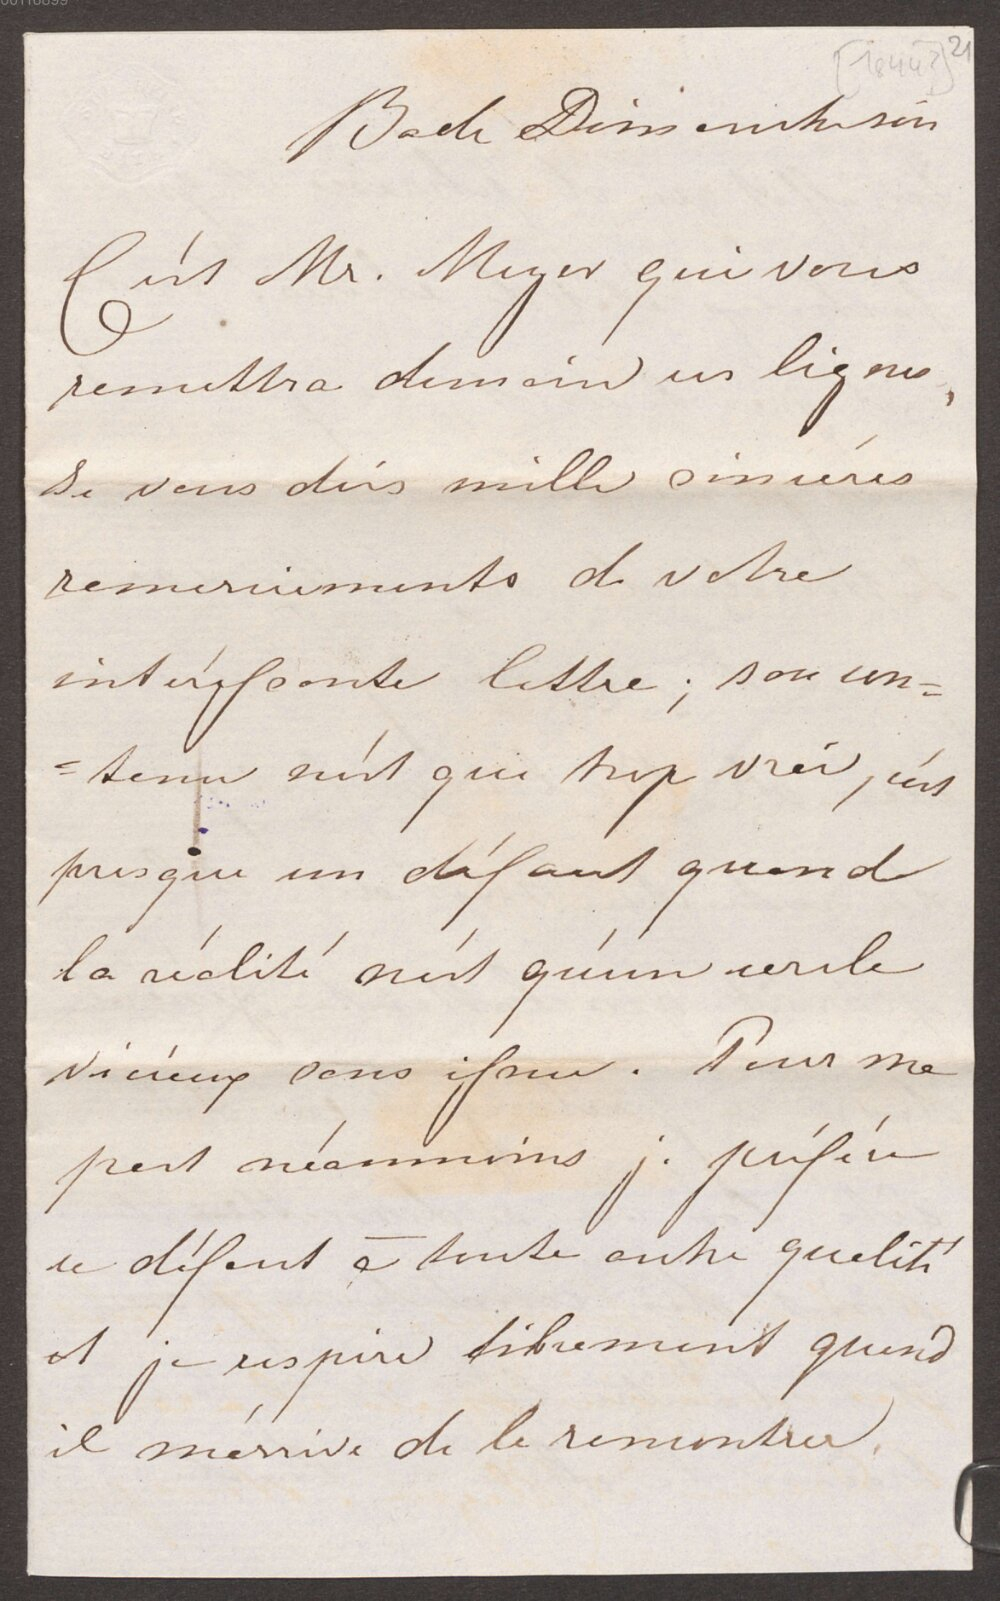 [1844?] 21
Bade Dimanche soir
C'est Mr. Meyer qui vous
remettra demain ces lignes,
Je vous dis mille sincères
remerciements de votre
intéressante lettre ; son con=
=tenu n'est que trop vrai, c'est
presque un défaut quand
la réalité n'est qu'un cercle
vicieux sans issue. Pour ma
part néanmoins je préfère
ce défaut à toute autre qualité
et je respire librement quand
il m'arrive de le rencontrer.